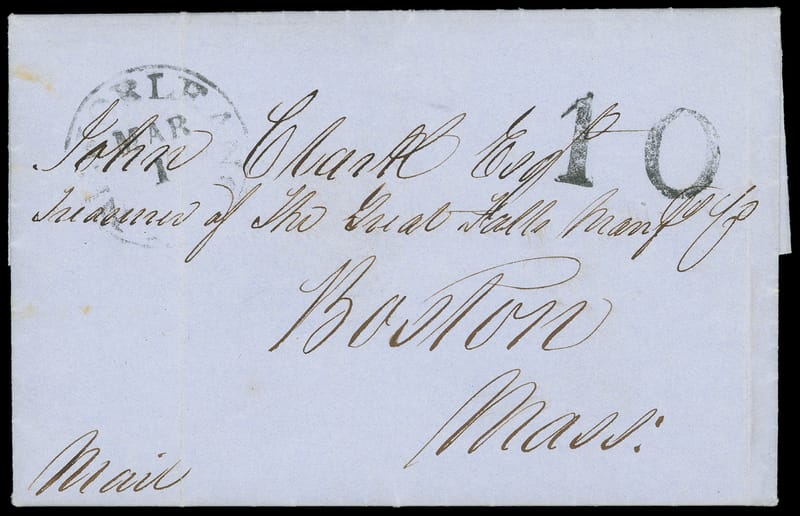 ORLEAN
MAR
1
10
John Clark Esqr
Treasurer of The Great Falls Manfg Co
Boston
Mass:
Mail